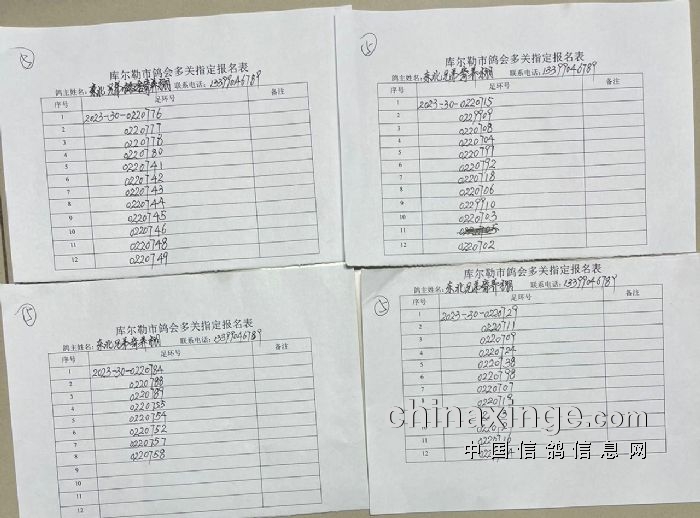 ⑤
库尔勒市鸽会多关指定报名表
鸽主姓名: 东北兄弟 养棚 联系电话: 13399046789
序号 足环号 备注
1 2023-30-0220776
2 0220777
3 0220778
4 0220780
5 0220741
6 0220742
7 0220743
8 0220744
9 0220745
10 0220746
11 0220748
12 0220749
⑤
库尔勒市鸽会多关指定报名表
鸽主姓名: 东北兄弟 养棚 联系电话: 13399046789
序号 足环号 备注
1 2023-30-0220715
2 0229909
3 0220708
4 0220704
5 0220791
6 0220792
7 0220718
8 0220706
9 0229910
10 0220703
11
12 0220702
⑤
库尔勒市鸽会多关指定报名表
鸽主姓名: 东北兄弟 养棚 联系电话: 13399046789
序号 足环号 备注
1 2023-30-0220784
2 0220788
3 0220789
4 0220755
5 0220754
6 0220752
7 0220757
8 0220758
9
10
11
12
⑤
库尔勒市鸽会多关指定报名表
鸽主姓名: 东北兄弟 养棚 联系电话: 13399046789
序号 足环号 备注
1 2023-30-0220729
2 0220711
3 0220709
4 0220724
5 0220738
6 0220798
7 0220707
8
11
12
chinaxinge.com
中国信鸽信息网